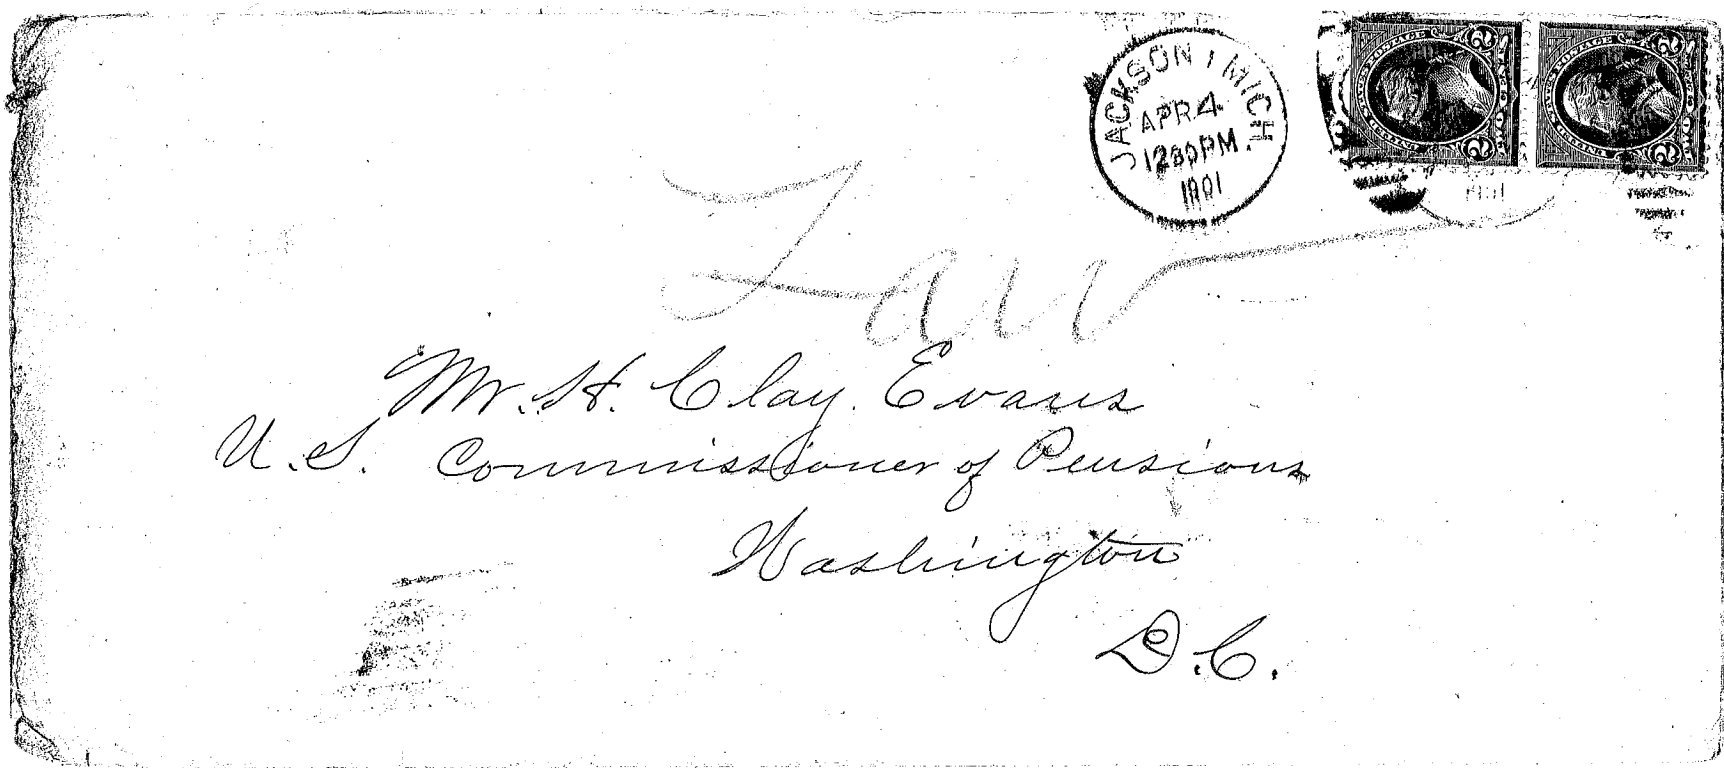 JACKSON, MICH
APR 4
1230PM
1901
Law
Mr. H. Clay. Evans
U.S. Commissioner of Pensions
Washington
D.C.